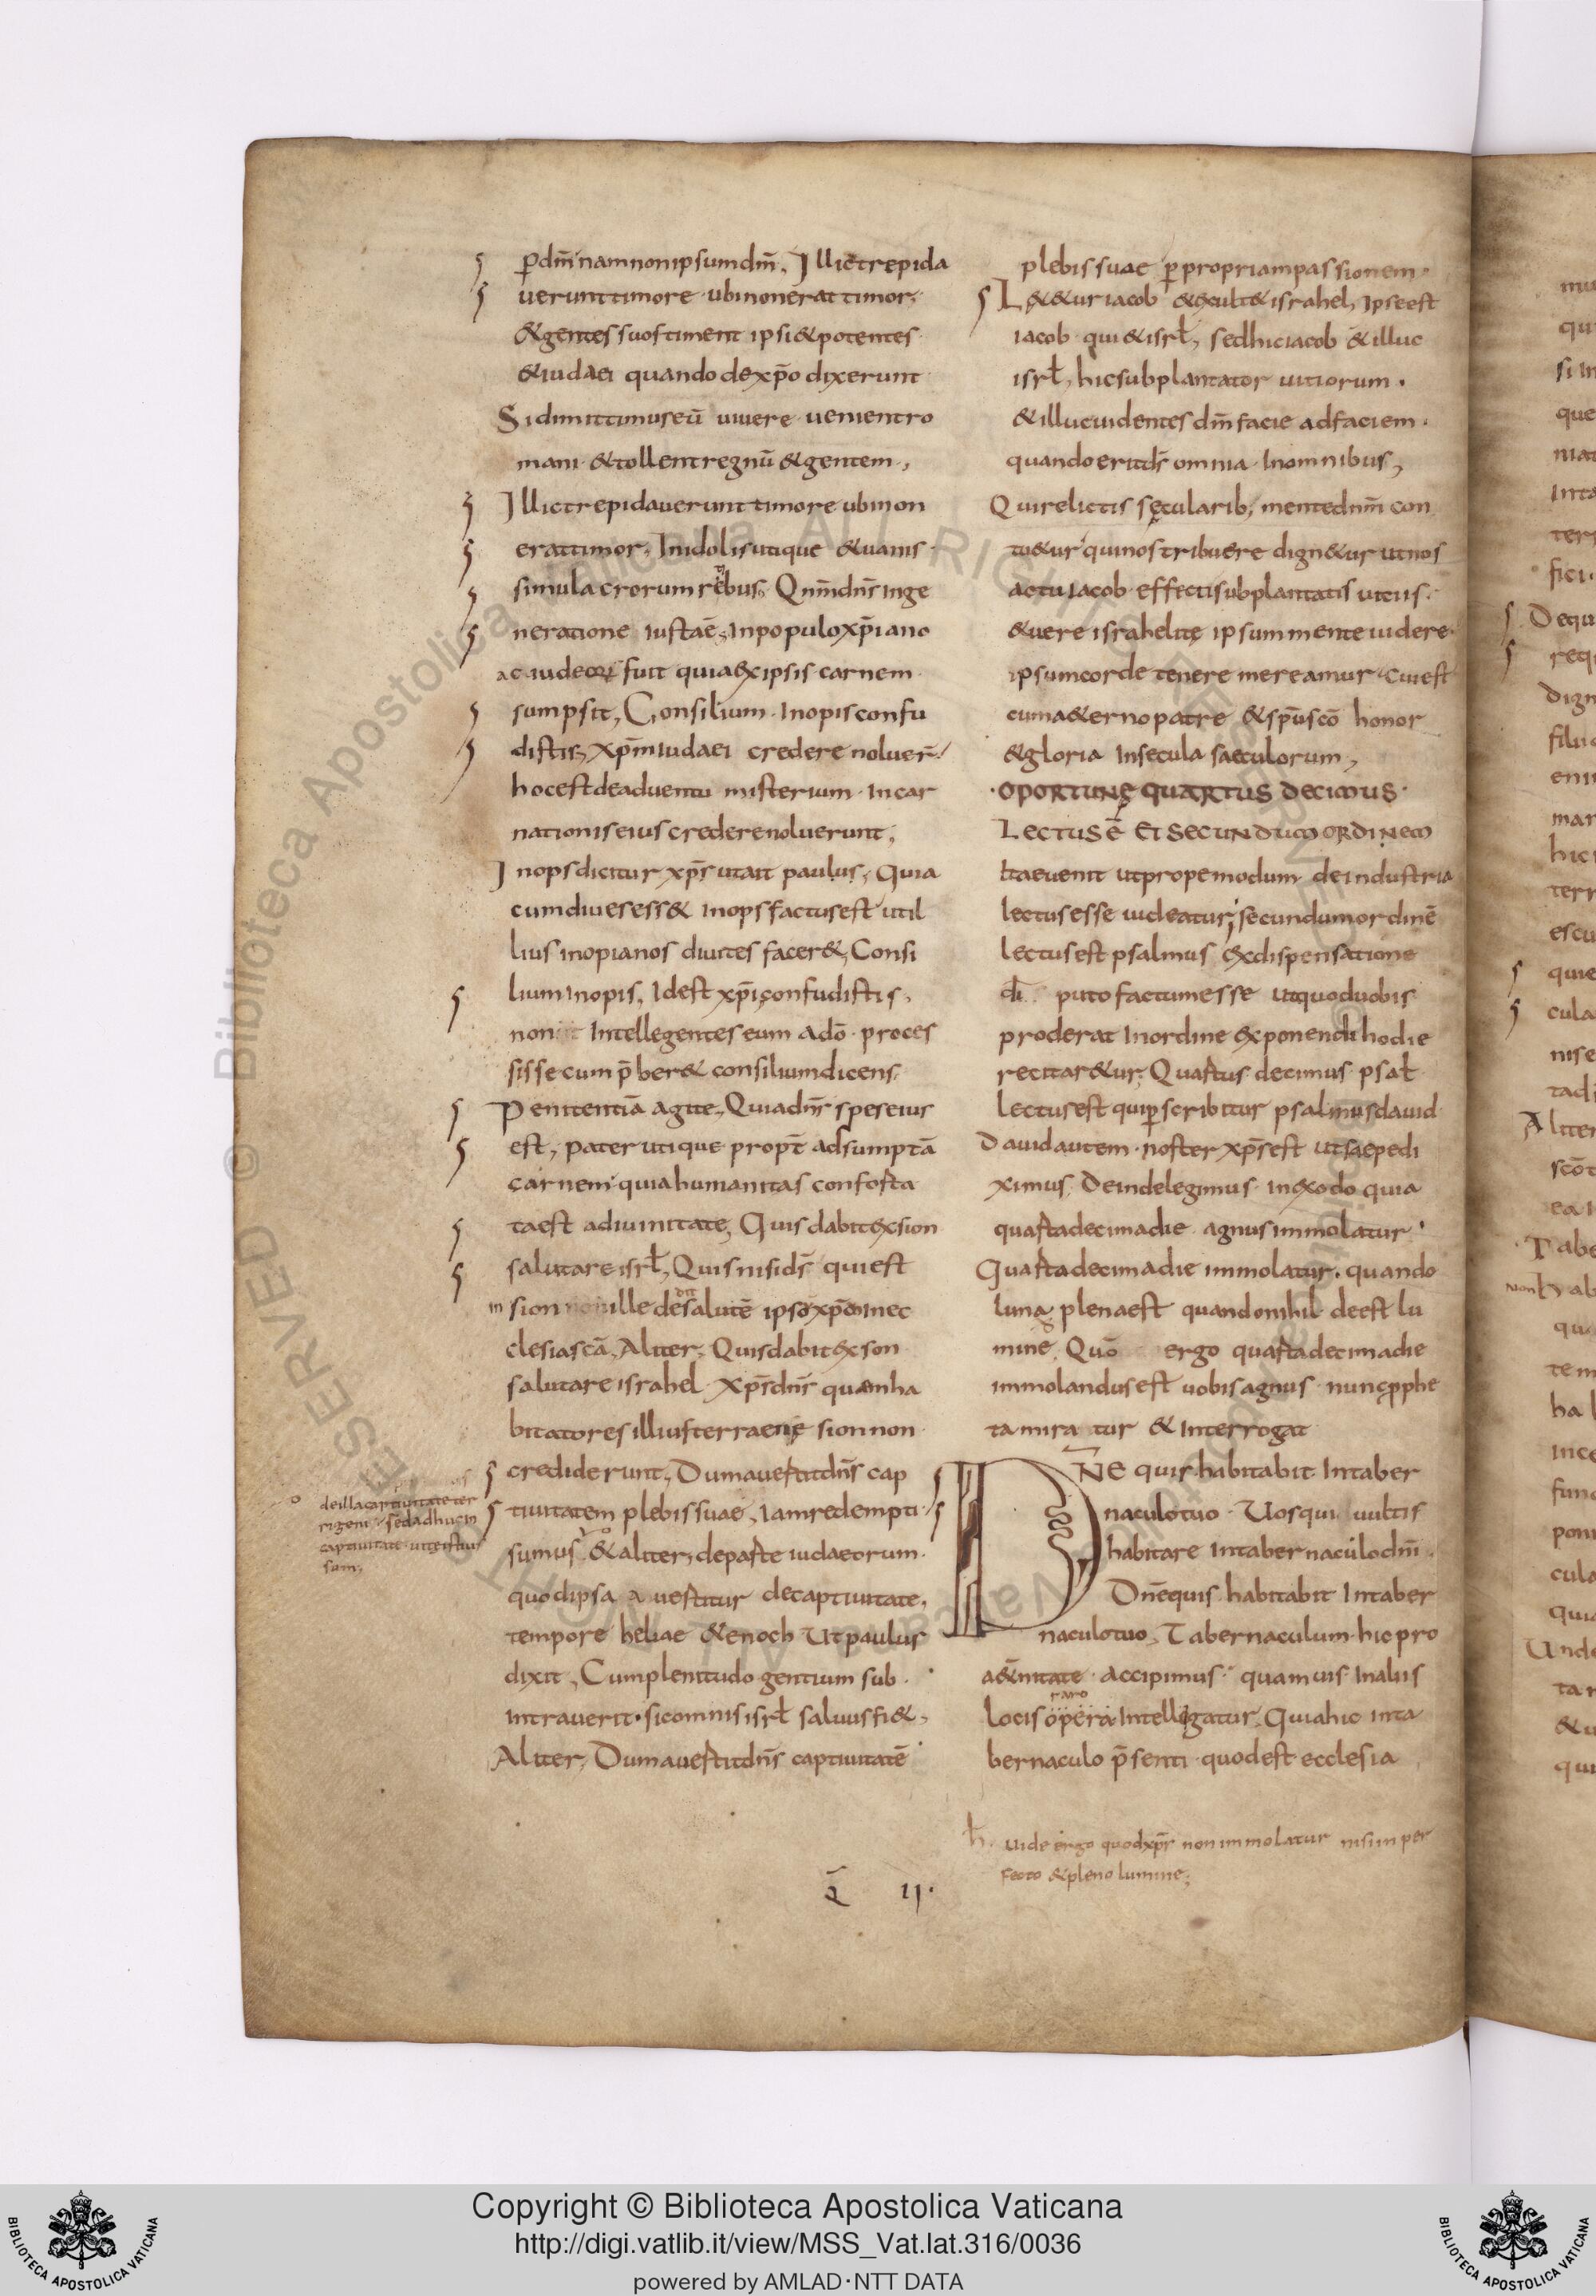 ꝑdm̄ namnonipsumdm̄, Illictrepida
uerunttimore ubinonerattimor,
&gentes suostiment ipsi&potentes
&iudaei quando dexp̄o dixerunt
Sidimittimuseū uiuere uenientro
mani &tollentregnū &gentem,
Illictrepidauerunttimore ubinon
erattimor, Inidolisutique &uanis
simulacrorum rebus, Qnm̄dn̄singe
neratione iustaē, Inpopuloxp̄iano
ac iudeorū fuit quia&xipsis carnem
sumpsit, Consilium Inopisconfu
distis, xp̄miudaei credere noluer̄
hocestdeaduentu misterium incar
nationiseius crederenoluerunt,
Inopsdicitur xp̄s utait paulus, Quia
cumdiuesess& inopsfactusest util
lius inopianos diuites facer&, Consi
liuminopis, Idest xp̄iconfudistis,
non Intellegentes eum adō proces
sisse cum p̄ber& consiliumdicens
Penitentiā agite, Quiadn̄s speseius
est, pater utique propt̄ adsumptā
carnem quiahumanitas confosta
taest adiuinitate, Quis dabit&xsion
salutare isrł, Quisnisids̄ quiest
in sion ille desalutē ipsexp̄o inec
clesiascā, Aliter, Quisdabit&xson
salutare israhel xp̄sdn̄s quemha
bitatores illiusterrae sionnon
crediderunt, Dumauertitdn̄s cap
tiuitatem plebissuae, Iamredempti
sumus &aliter, departe iudaeorum
quodipsa auertitur decaptiuitate,
tempore heliae &enoch Utpaulus
dixit, Cumplenitudo gentium sub
intrauerit sicomnisisrł saluusfi&,
Aliter, Dumauertitdn̄s captiuitatē
deillacaptiuitateter
rigeni sedadhucin
captiuitate
sum,
plebissuae ꝑpropriampassionem
L&&uriacob &&xult&israhel, Ipseest
iacob qui&isrł, sedhiciacob &illuc
isrł, hicsubplantator uitiorum
&illucuidentes dm̄ facie adfaciem
quandoeritds̄ omnia Inomnibus,
Quirelictis sęcularib; mentednm̄ con
tu&ur quinostribuere dign&ur utnos
actuiacob effectisubplantatis uitiis
&uere israhelitę ipsummente uidere
ipsumcorde tenere mereamur Cuiest
cuma&ernopatre &sp̄uscō honor
&gloria Insecula saeculorum,
OPORTUNE QUARTUS DECIMUS
LECTUS Ē ET SECUNDUM ORDINEM
Itaeuenit utpropemodum deindustria
lectusesse uideatur, secundumordinē
lectusest psalmus &xdispensatione
dī puto factumesse utquoduobis
proderat Inordine &xponendi hodie
recitar&ur, Quartus decimus psał
lectusest quiꝑscribitur psalmusdauid
Dauidautem noster xp̄sest utsaepedi
ximus Deindelegimus in&xodo quia
quartadecimadie agnusimmolatur
Quartadecimadie immolatur quando
luna plenaest quandonihil deest lu
mine Quō ergo quartadecimadie
immolandusest uobisagnus nuncꝓphe
tamiratur & Interrogat
DNE quis habitabit Intaber
naculotuo Uosqui uultis
habitare Intabernaculodn̄i
Dnēquis habitabit Intaber
naculotuo, Tabernaculum hicpro
a&̄nitate accipimus quamuis Inaliis
raro
locisopera Intellegatur, Quiahic inta
bernaculo p̄senti quodest ecclesia
uide ergo quodxp̄s nonimmolatur nisiinper
fecto &pleno lumine;
Q II
Copyright © Biblioteca Apostolica Vaticana
http://digi.vatlib.it/view/MSS_Vat.lat.316/0036
powered by AMLAD·NTT DATA
BIBLIOTECA APOSTOLICA VATICANA
BIBLIOTECA APOSTOLICA VATICANA